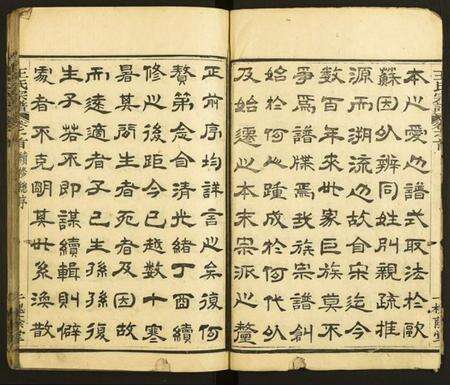 本之愛之譜式取法於歐
蘇因以辨同姓別親疏推
源而溯流也故自宋迄今
數百年來世家巨族莫不
爭為譜牒焉我族宗譜創
始於何世踵成於何代以
及始遷之本末宗派之釐
正前序均詳言之矣復何
贅第念自清光緒丁酉續
修之後距今已越數十寒
暑其間生者死者及因故
而遠適者子已生孫孫復
生子若不即謀續輯則僻
處者不克明其世系渙散
王氏宗譜 卷首 續修總序